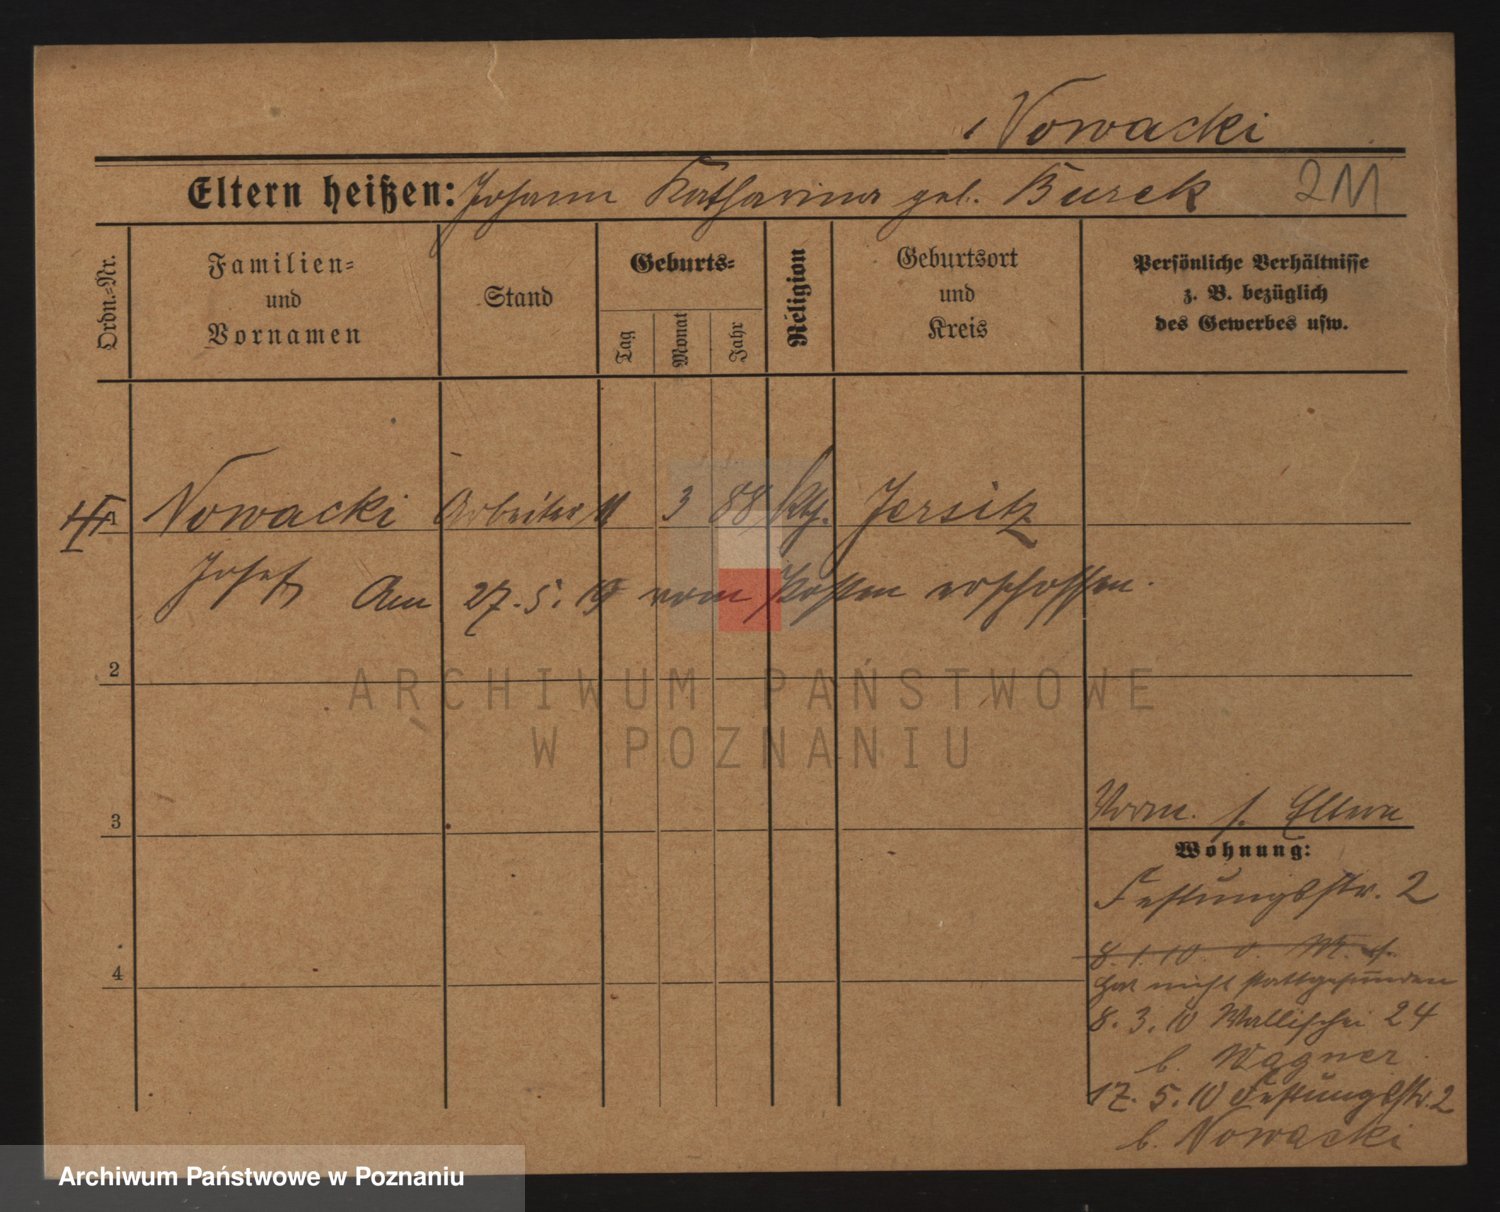 Nowacki
Eltern heißen: Johann Katharina geb. Burek 2M
Ordn.-Nr.
Familien-
und
Vornamen
Stand
Geburts-
Tag
Monat
Jahr
Religion
Geburtsort
und
Kreis
Persönliche Verhältnisse
z. B. bezüglich
des Gewerbes usw.
1 Nowacki Arbeiter 11 3 88 kth. Jersitz
Josef Am 27.5.19 vom Posten erschossen.
2
ARCHIWUM PAŃSTWOWE
W POZNANIU
3
Vorm. s. Eltern
Wohnung:
Festungsstr. 2
8.1.10
4
hat nicht stattgefunden
8.3.10 Wallischei 24
b. Wagner
17.5.10 Festungsstr. 2
b. Nowacki
Archiwum Państwowe w Poznaniu